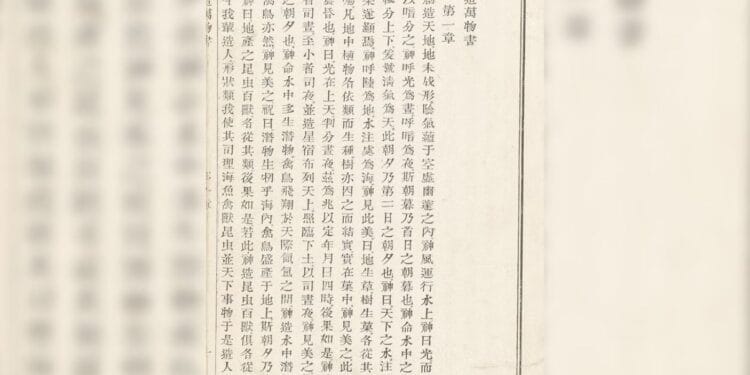 造萬物書
第一章
造天地地未成形陰氣蘊于空虛幽邃之內神風運行水上神曰光而
以暗分之神呼光為晝呼暗為夜斯朝暮乃首日之朝暮也神命水中之
分上下爰號淸氣為天此朝夕乃第二日之朝夕也神曰天下之水注
遂顯焉神呼陸為地水注處為海神見此美曰地生草樹生菓各從其
凡地中植物各依類而生種樹亦因之而結實實在菓中神見美之此
也神曰光在上天判分晝夜茲為兆以定年月日四時後果如是神
司晝至小者司夜並造星宿布列天上照臨下土以司晝夜神見美之
之朝夕也神命水中多生潛物禽鳥飛翔於天際氤氳之間神造水中潛
禽鳥亦然神見美之祝曰潛物生物乎海內禽鳥盛產于地上斯朝夕乃
神曰地產之昆虫百獸各從其類後果如是若此神造昆虫百獸俱各從
我輩造人形狀類我使其司理海魚禽獸昆虫並天下事物于是造人
造萬物書